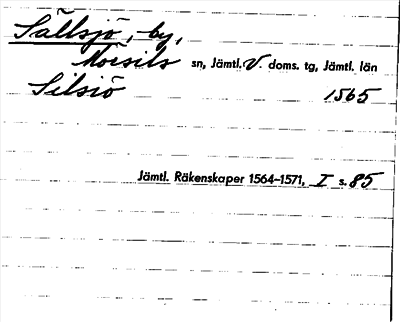 Sällsjö, by,
Mörsils sn, Jämtl. V. doms. tg, Jämtl. län
Silsiö 1565
Jämtl. Räkenskaper 1564-1571, I s. 85